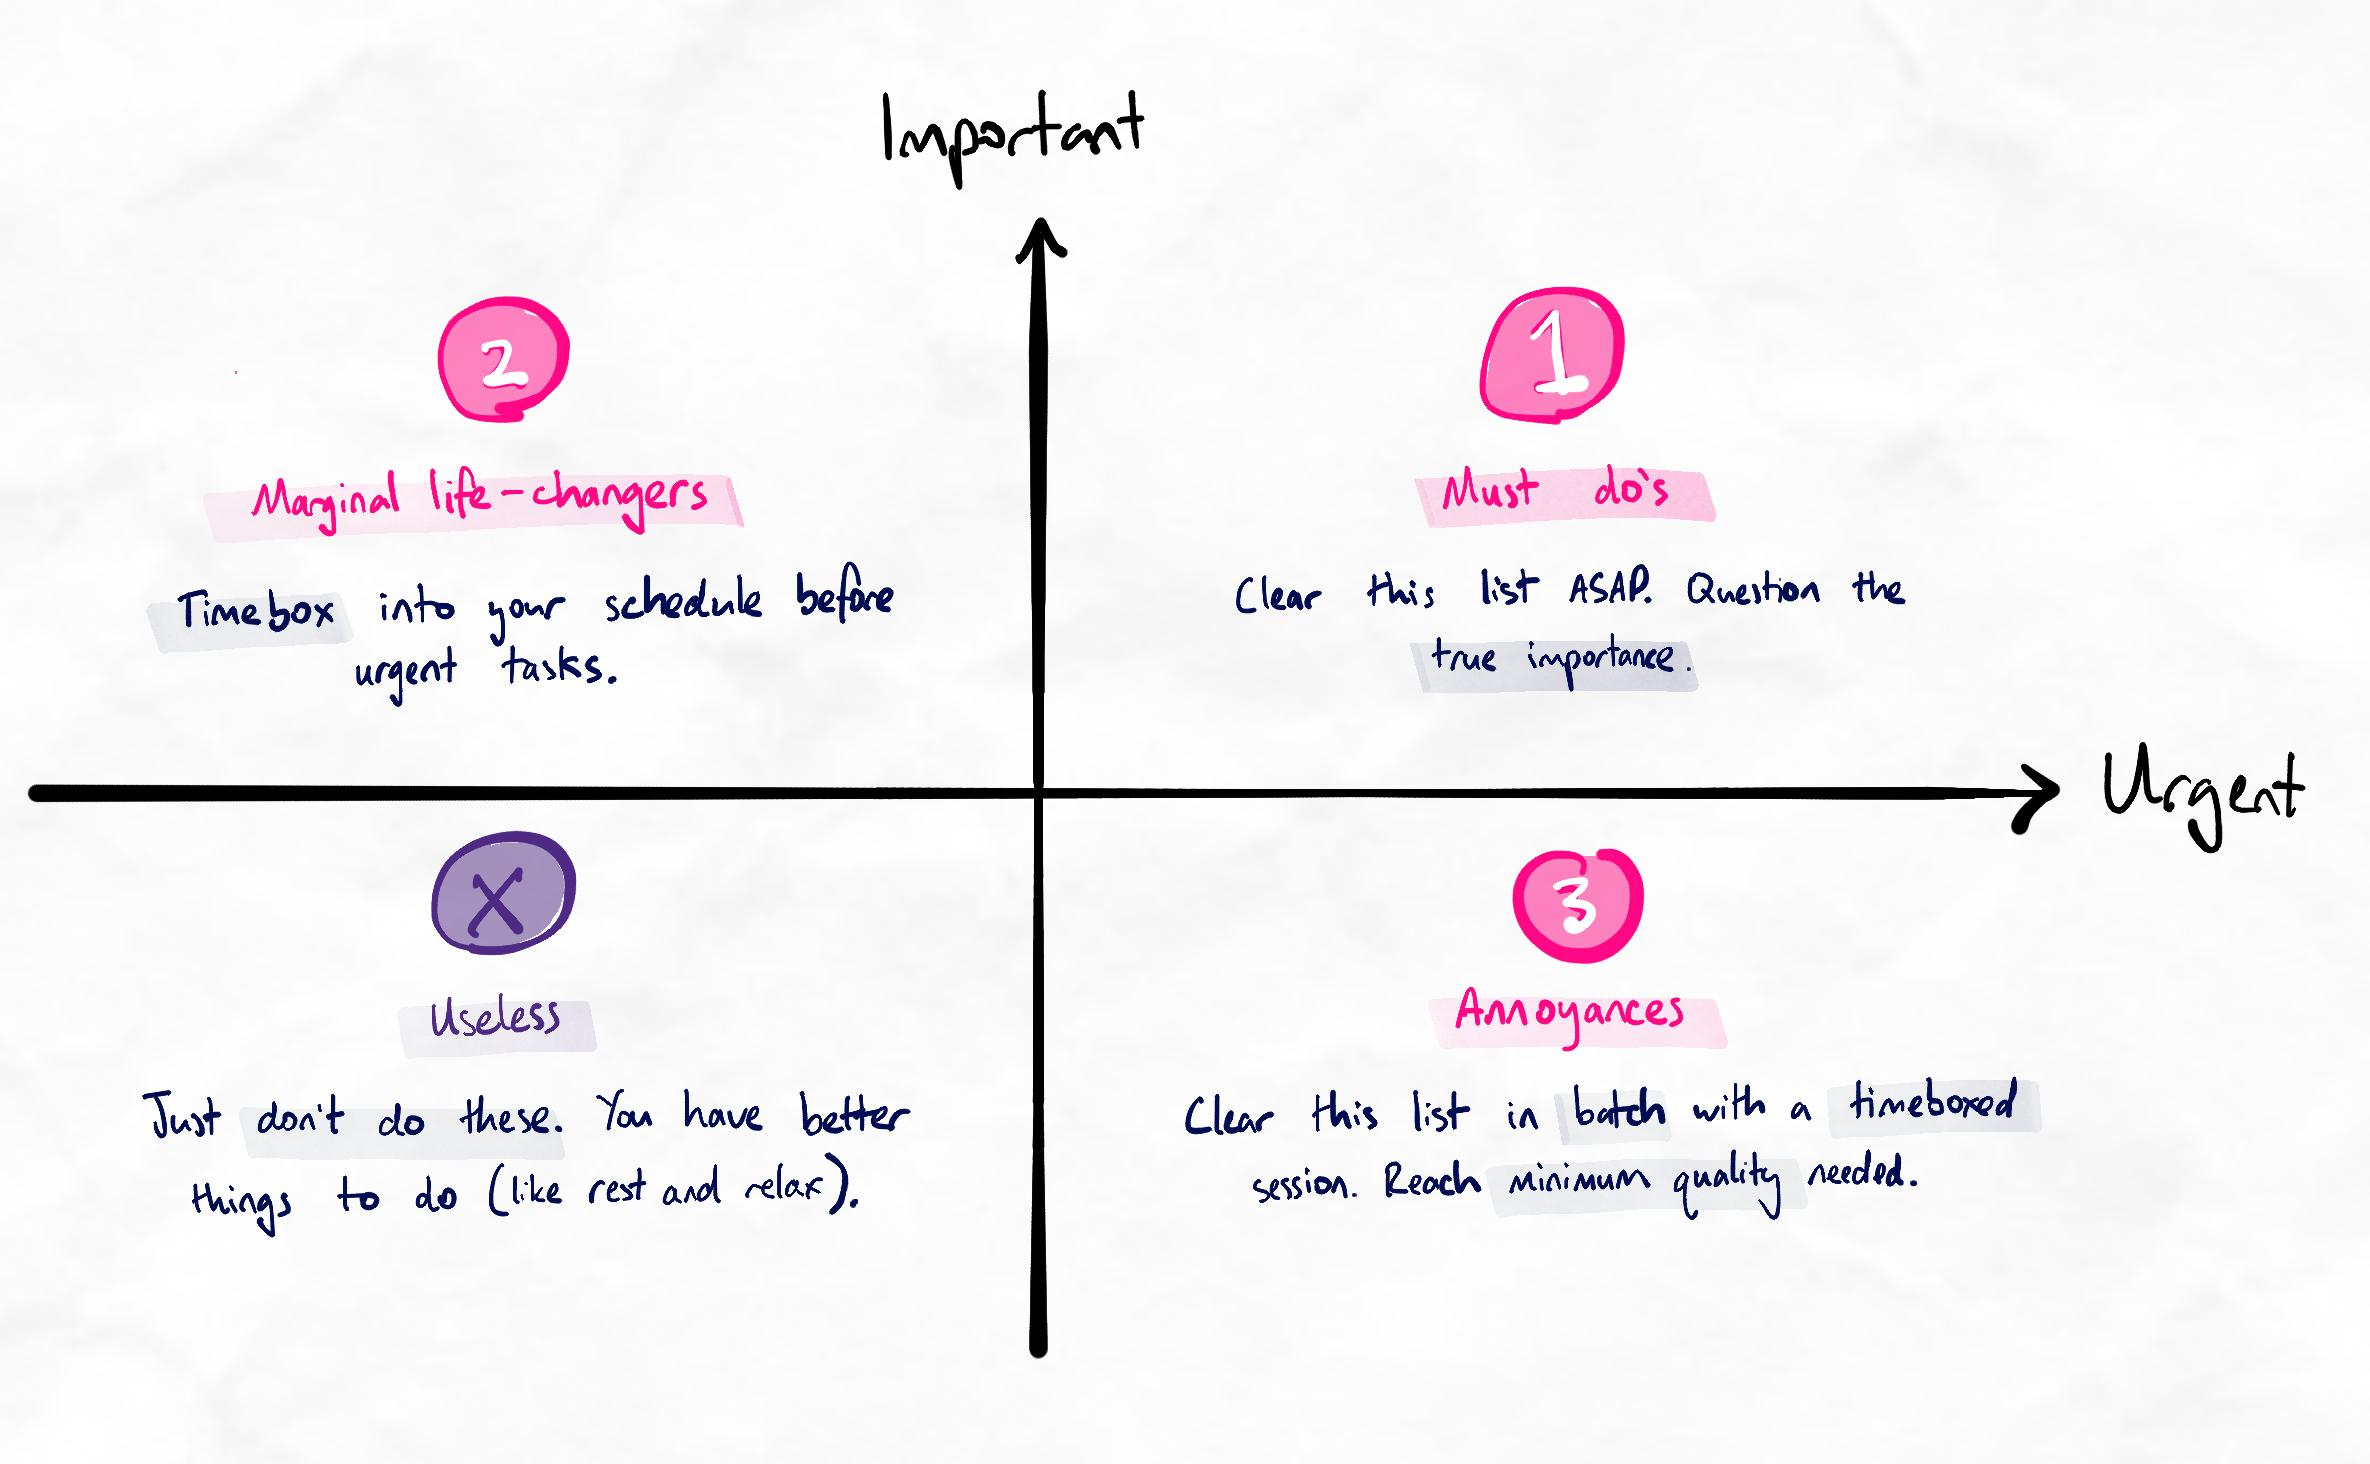 Important
2
Marginal life-changers
Timebox into your schedule before
urgent tasks.
1
Must do's
Clear this list ASAP. Question the
true importance.
Urgent
X
Useless
Just don't do these. You have better
things to do (like rest and relax).
3
Annoyances
Clear this list in batch with a timeboxed
session. Reach minimum quality needed.